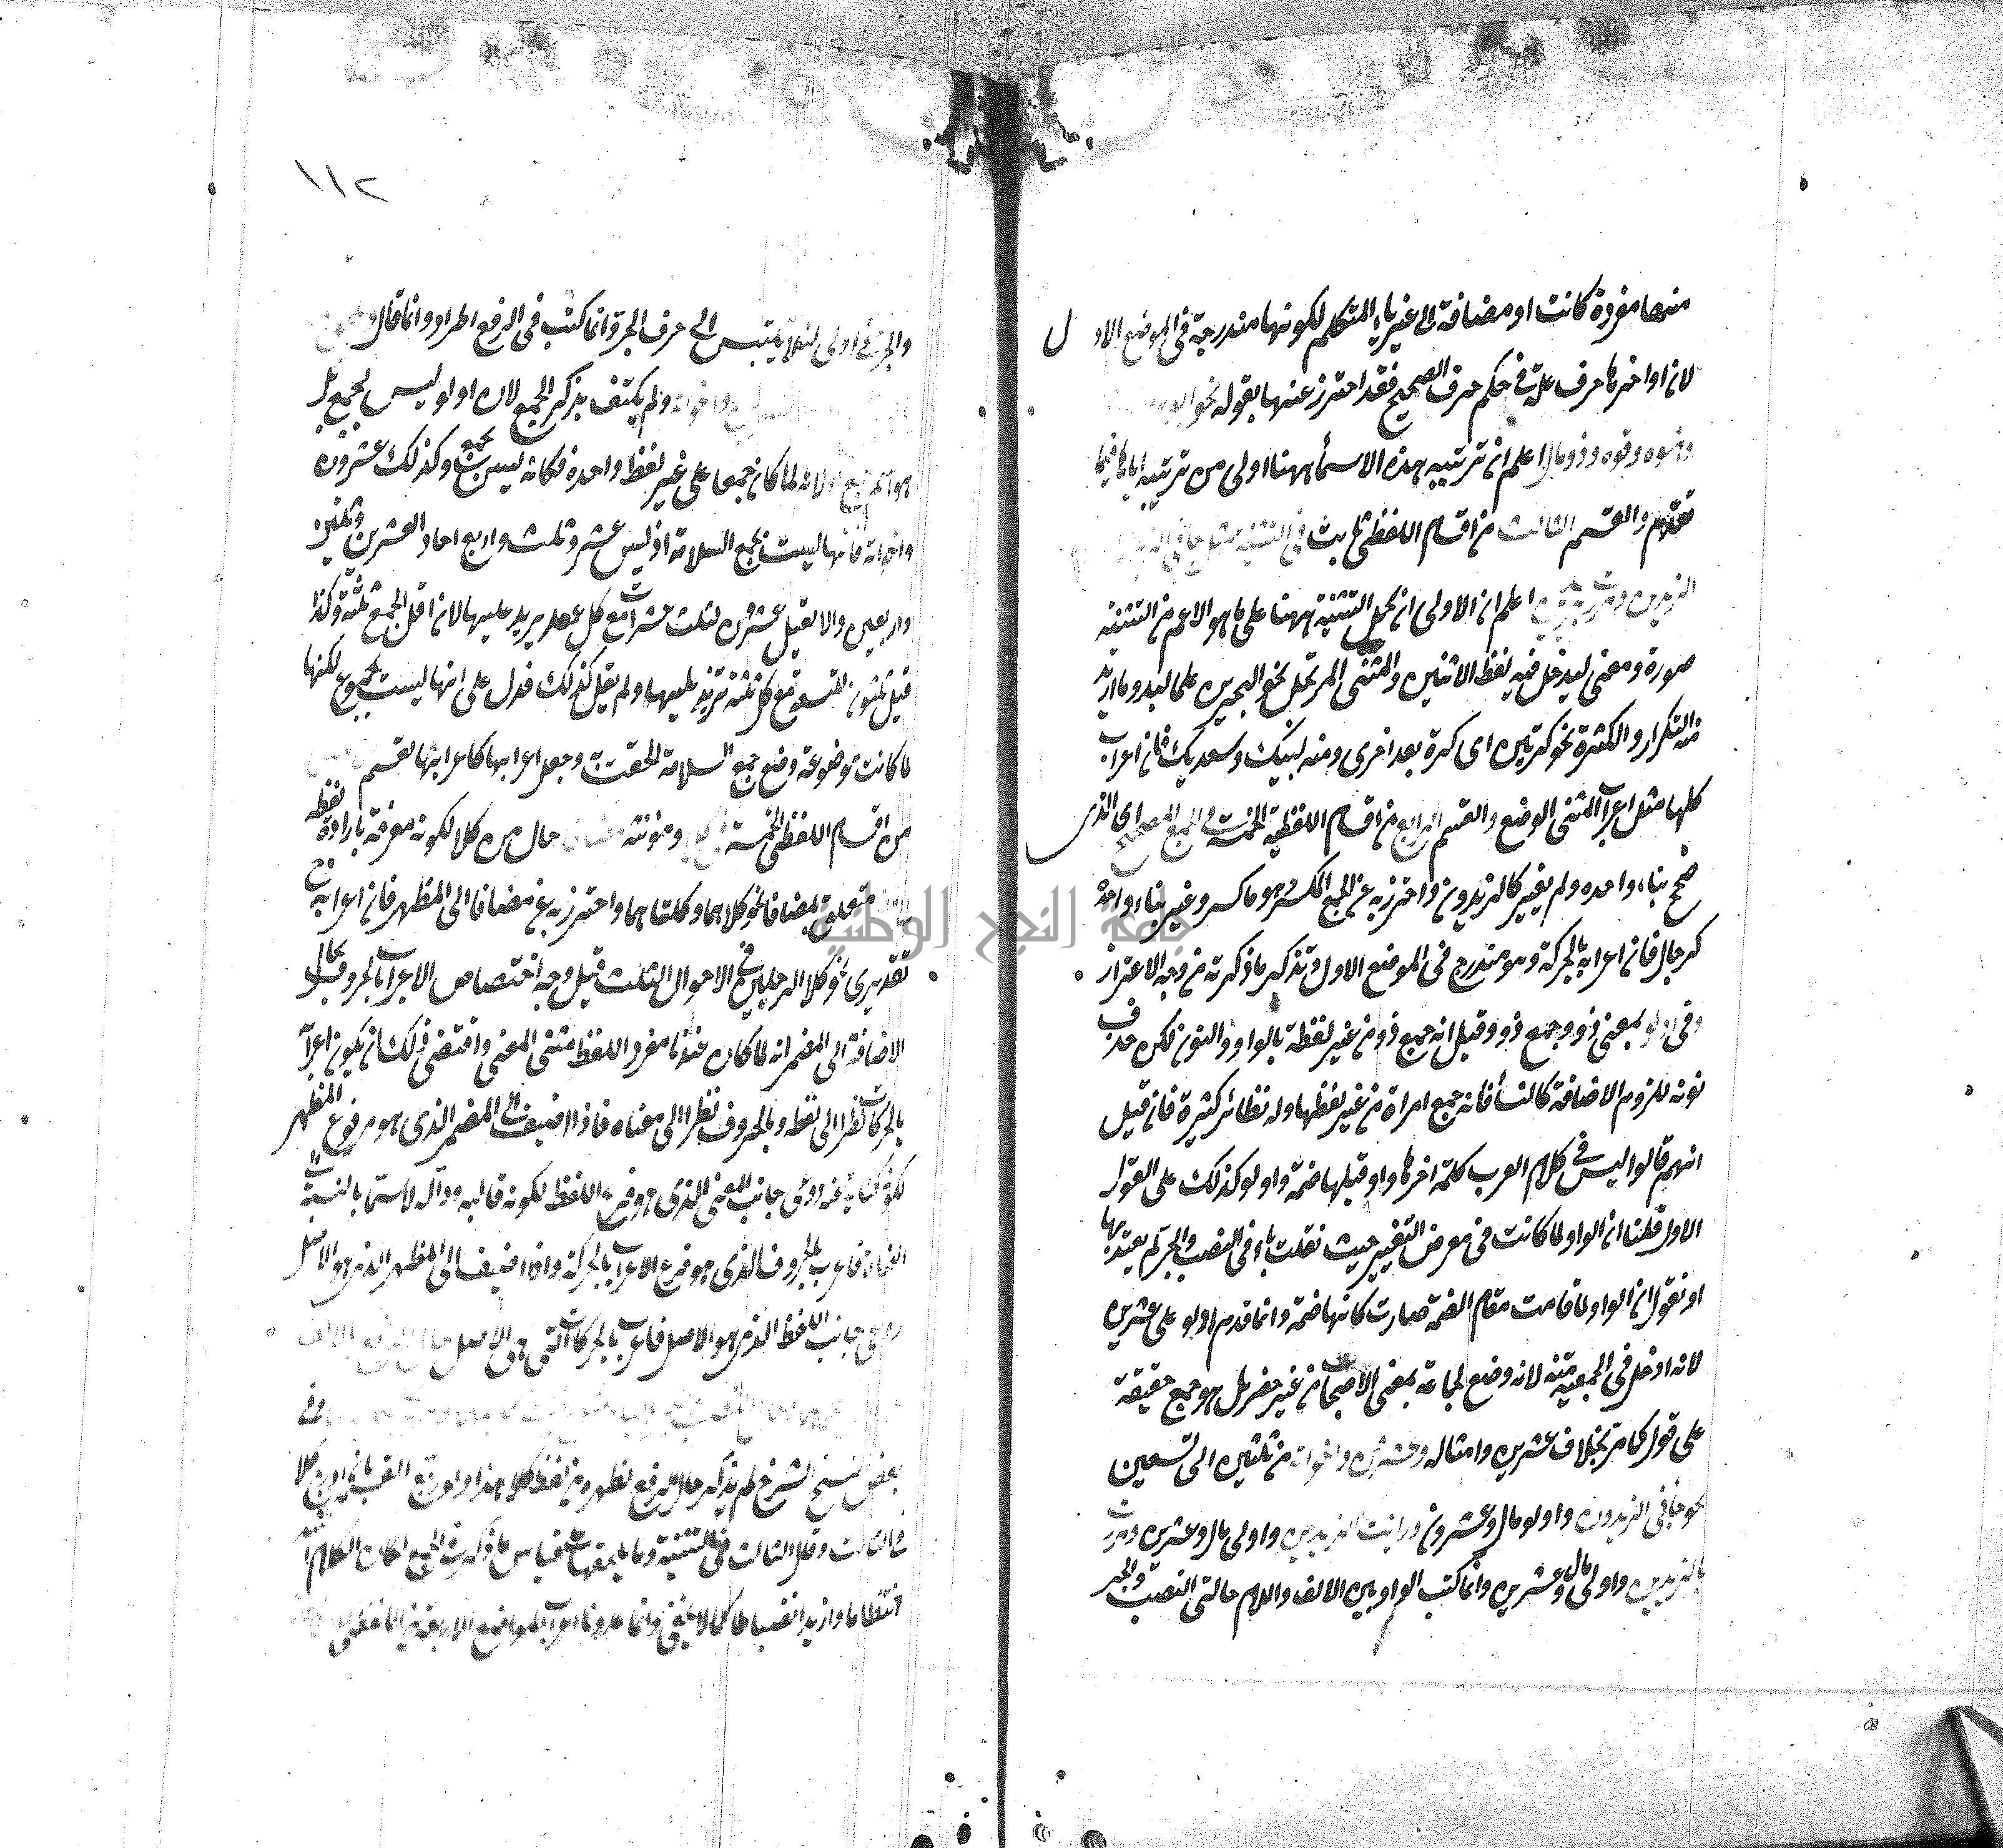 منها مفردة كانت او مضافة الى غير ياء المتكلم لكونها مندرجة فى الموضع الاول
لان اواخرها حرف علة فى حكم حرف الصحيح فقد احترز عنها بقوله نحو ابوه
واخوه وفوه وذو مال اعلم ان ترتيبه هذه الاسماء ههنا اولى من ترتيبه اياها فيما
تقدم والقسم الثالث من اقسام اللفظى ثابت فى التثنية مثل جاءنى
الزيدين ومررت اعلم ان الاولى ان يحمل التثنية ههنا على ما هو الاعم من التثنية
صورة ومعنى ليدخل فيه لفظ الاثنين والمثنى المرتجل نحو البحرين علما لبلد وما اريد
منه التكرار والكثرة نحو كرتين اى كرة بعد اخرى ومنه لبيك وسعديك فان اعراب
كلها مثل اعراب المثنى الوضع والقسم الرابع من اقسام اللفظية الخمسة فى الجمع المصحح اى الذى
صحح بناء واحده ولم يغير كالزيدون واحترز به عن الجمع المكسر وهو ما كسر وغير بناء واحده
كرجال فان اعرابه بالحركة وهو مندرج فى الموضع الاول وتذكير ما ذكرته من وجه الاعتراز
وفى اولو بمعنى ذوو جمع ذو وقيل انه جمع ذو من غير لفظه بالواو والنون لكن حذف
نونه للزوم الاضافة كالنساء فانه جمع امراة من غير لفظها وله نظائر كثيرة فان قيل
انهم قالوا ليس فى كلام العرب كلمة اخرها واو قبلها ضمة واولو كذلك على القول
الاول قلنا ان الواو لما كانت فى معرض التغيير حيث نقلت ياء فى النصب والجر لم يعتد بها
او نقول ان الواو لما قامت مقام الضمة صارت كانها ضمة وانما قدم اولو على عشرين
لانه ادخل فى الجمعية منه لانه وضع لجماعة بمعنى الاصحاب من غير حصر بل هو جمع حقيقة
على قول كما مر بخلاف عشرين وامثاله وعشرون واخواته من ثلثين الى تسعين
نحو جاءنى الزيدون واولو مال وعشرون ورايت الزيدين واولى مال وعشرين ومررت
بالزيدين واولى مال وعشرين وانما كتب الواو بين الالف واللام حالتى النصب والجر
١١٢
والجر فى اولى لئلا يلتبس الى حرف الجر وانما كتب فى الرفع اطراد وانما قال
واخواته ولم يكتف بذكر الجمع لان اولو ليس بجمع بل
هو اسم جمع ولانه لما كان جمعا على غير لفظ واحده فكانه ليس بجمع وكذلك عشرون
واخواته فانها ليست بجمع السلامة اذ ليس عشر وثلث واربع احاد العشرين وثلثين
واربعين والا لقيل عشرون لثلث عشرات مع كل عدد يزيد عليها لان اقل الجمع ثلثة وكذا
قيل ثلثون للتسعة مع كل ثلثة تزيد عليها ولم يقل كذلك فدل على انها ليست بجموع لكنها
لما كانت موضوعة وضع جمع السلامة الحقت به وجعل اعرابها كاعرابها تقسم
من اقسام اللفظى الخمسة ومونثه حال من كلا لكونه معرفة بارادة لفظه
متعلق بمضافا نحو كلاهما وكلتاهما واحترز به عن مضافا الى المظهر فان اعرابه ح
تقديرى نحو كلا الرجلين فى الاحوال الثلث قيل وجه اختصاص الاعراب بالحروف بحال
الاضافة الى المضمر انه لما كان عندنا مفرد اللفظ مثنى المعنى واقتضى ذلك ان يكون اعرابه
بالحركات نظرا الى لفظه وبالحروف نظرا الى معناه فاذا اضيف الى المضمر الذى هو فرع المظهر
لكونه كناية عنه روعى جانب المعنى الذى هو فرع اللفظ لكونه قالبه ودالة لاسيما بالنسبة الى
النحاة فاعرب بالحروف الذى هو فرع الاعراب بالحركة واذا اضيف الى المظهر الذى هو الاصل
روعى جانب اللفظ الذى هو الاصل فاعرب بالحركات التى هى الاصل
وفى
بعض نسخ الشرح لم يذكر حال الرفع لظهوره من لفظ كلا هذا ولو
فى الثالث وقال الثالث فى التثنية وما يلحقها على قياس ما ذكره فى الجمع لكان الكلام
انتظاما وازيد انضباطا كما لا يخفى وانما عدونا اعراب المواضع الاربعة من اللفظى
جامعة النجاح الوطنية